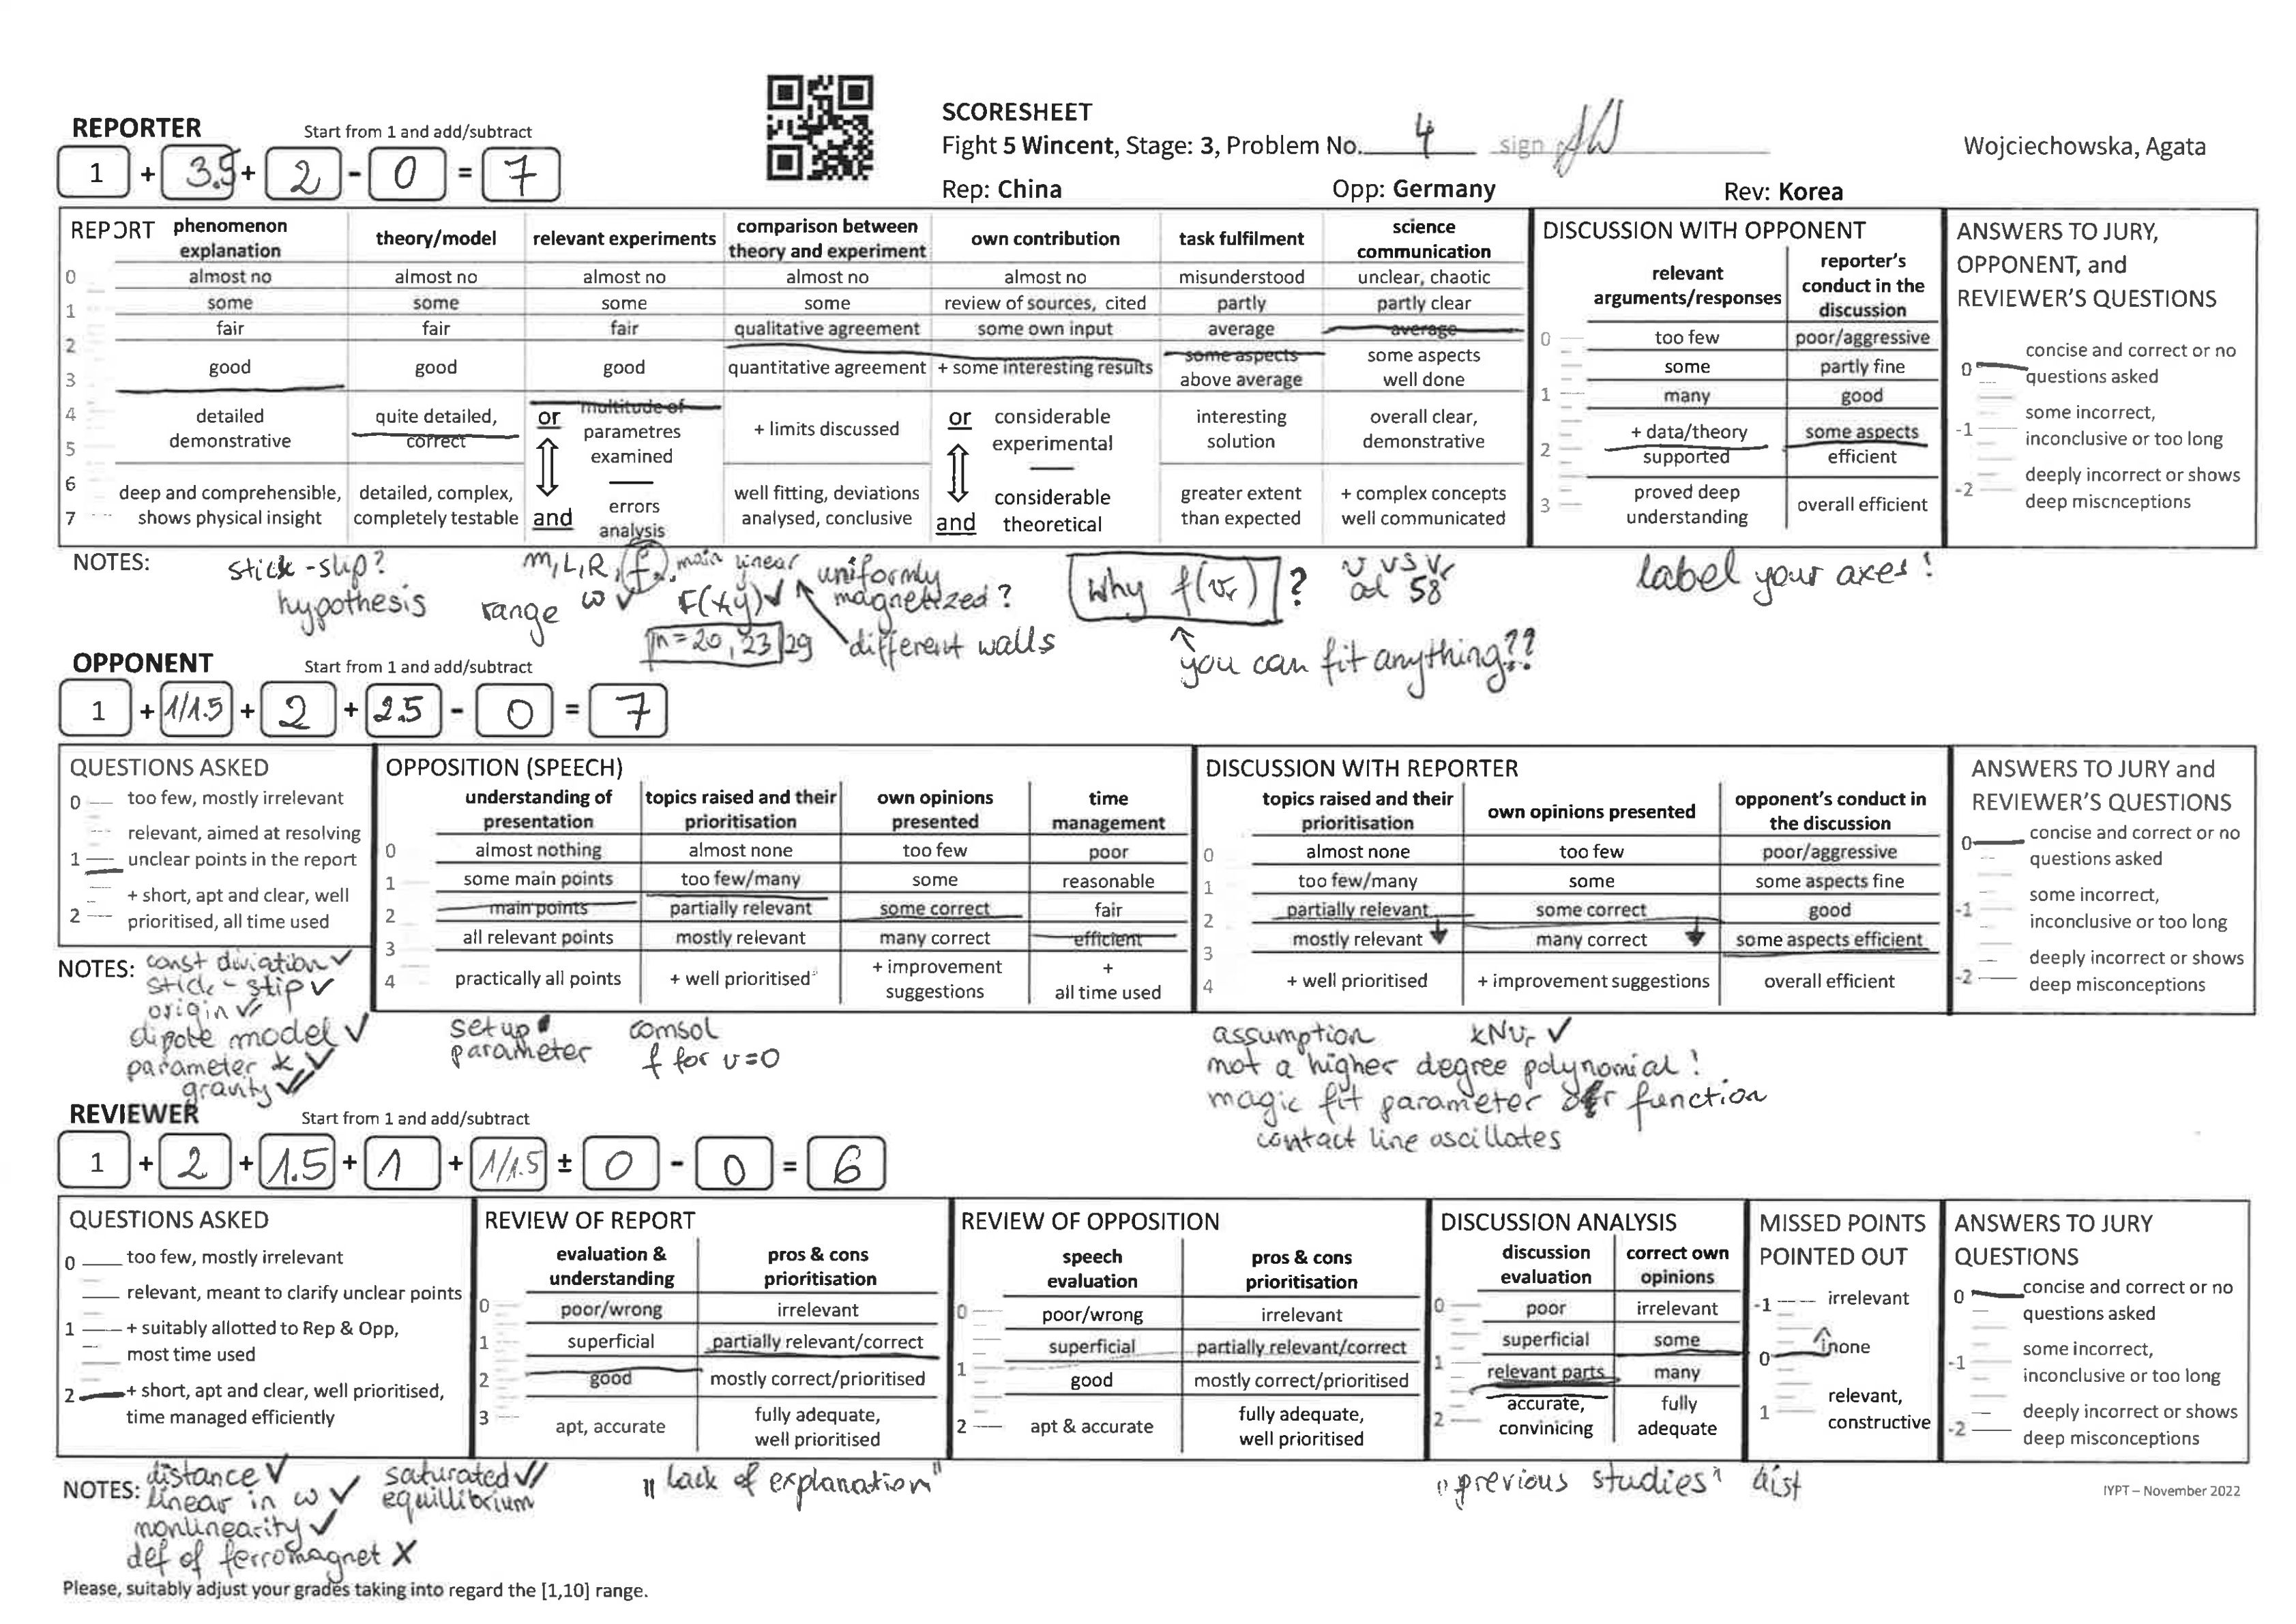 SCORESHEET
REPORTER Start from 1 and add/subtract
Fight 5 Wincent, Stage: 3, Problem No. 4 sign
Wojciechowska, Agata
1 + 3.5 + 2 - 0 = 7
Rep: China Opp: Germany Rev: Korea
REPORT
phenomenon explanation
theory/model
relevant experiments
comparison between theory and experiment
own contribution
task fulfilment
science communication
0 almost no almost no almost no almost no almost no misunderstood unclear, chaotic
1 some some some some review of sources, cited partly partly clear
2 fair fair fair qualitative agreement some own input average average
3 good good good quantitative agreement + some interesting results some aspects above average some aspects well done
4 5 detailed demonstrative
quite detailed, correct
or multitude of parametres examined
+ limits discussed
or considerable experimental
interesting solution
overall clear, demonstrative
6 7 deep and comprehensible, shows physical insight
detailed, complex, completely testable
and errors analysis
well fitting, deviations analysed, conclusive
and considerable theoretical
greater extent than expected
+ complex concepts well communicated
DISCUSSION WITH OPPONENT
relevant arguments/responses
reporter's conduct in the discussion
0 too few poor/aggressive
some partly fine
1 many good
2 + data/theory supported some aspects efficient
3 proved deep understanding overall efficient
ANSWERS TO JURY, OPPONENT, and REVIEWER'S QUESTIONS
0 concise and correct or no questions asked
-1 some incorrect, inconclusive or too long
-2 deeply incorrect or shows deep miscnceptions
NOTES:
stick-slip?
hypothesis
range ω ✓
m, L, R, f, main linear
F(x,y) ✓
uniformly magnetized?
n = 20, 23, 29
different walls
Why f(vr)?
v vs vr
ad 58
you can fit anything??
label your axes!
OPPONENT Start from 1 and add/subtract
1 + 1/1.5 + 2 + 2.5 - 0 = 7
QUESTIONS ASKED
0 too few, mostly irrelevant
relevant, aimed at resolving
1 unclear points in the report
+ short, apt and clear, well
2 prioritised, all time used
OPPOSITION (SPEECH)
understanding of presentation
topics raised and their prioritisation
own opinions presented
time management
0 almost nothing almost none too few poor
1 some main points too few/many some reasonable
2 main points partially relevant some correct fair
3 all relevant points mostly relevant many correct efficient
4 practically all points + well prioritised + improvement suggestions + all time used
DISCUSSION WITH REPORTER
topics raised and their prioritisation
own opinions presented
opponent's conduct in the discussion
0 almost none too few poor/aggressive
1 too few/many some some aspects fine
2 partially relevant some correct good
3 mostly relevant many correct some aspects efficient
4 + well prioritised + improvement suggestions overall efficient
ANSWERS TO JURY and REVIEWER'S QUESTIONS
0 concise and correct or no questions asked
-1 some incorrect, inconclusive or too long
-2 deeply incorrect or shows deep misconceptions
NOTES: const diviation ✓
stick-slip ✓
origin ✓
dipole model ✓
parameter k ✓
gravity ✓
setup
parameter
comsol
f for v=0
assumption kNvr ✓
not a higher degree polynomial!
magic fit parameter or function
contact line oscillates
REVIEWER Start from 1 and add/subtract
1 + 2 + 1.5 + 1 + 1/1.5 ± 0 - 0 = 6
QUESTIONS ASKED
0 too few, mostly irrelevant
relevant, meant to clarify unclear points
1 + suitably allotted to Rep & Opp,
most time used
2 + short, apt and clear, well prioritised,
time managed efficiently
REVIEW OF REPORT
evaluation & understanding
pros & cons prioritisation
0 poor/wrong irrelevant
1 superficial partially relevant/correct
2 good mostly correct/prioritised
3 apt, accurate fully adequate, well prioritised
REVIEW OF OPPOSITION
speech evaluation
pros & cons prioritisation
0 poor/wrong irrelevant
superficial partially relevant/correct
1 good mostly correct/prioritised
2 apt & accurate fully adequate, well prioritised
DISCUSSION ANALYSIS
discussion evaluation
correct own opinions
0 poor irrelevant
superficial some
1 relevant parts many
2 accurate, convinicing fully adequate
MISSED POINTS POINTED OUT
-1 irrelevant
0 none
1 relevant, constructive
ANSWERS TO JURY QUESTIONS
0 concise and correct or no questions asked
-1 some incorrect, inconclusive or too long
-2 deeply incorrect or shows deep misconceptions
NOTES: distance ✓
linear in ω ✓
nonlinearity ✓
def of ferromagnet X
saturated ✓
equillibrium
"lack of explanation"
"previous studies" dist
IYPT – November 2022
Please, suitably adjust your grades taking into regard the [1,10] range.